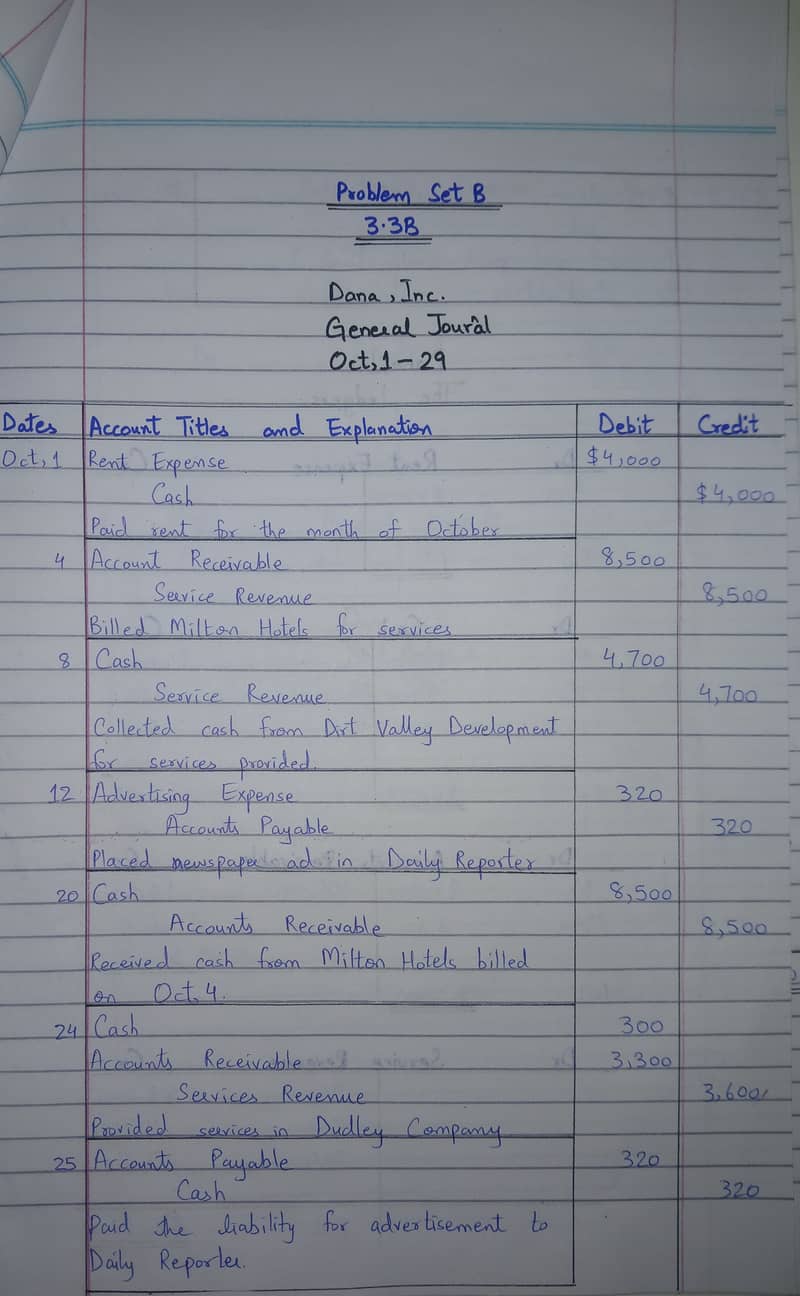 Problem Set B
3.3B
Dana, Inc.
General Jour'al
Oct, 1 - 29
Dates Account Titles and Explanation Debit Credit
Oct, 1 Rent Expense $4,000
Cash $4,000
Paid rent for the month of October
4 Account Receivable 8,500
Service Revenue 8,500
Billed Milton Hotels for services
8 Cash 4,700
Service Revenue 4,700
Collected cash from Dirt Valley Development
for services provided.
12 Advertising Expense 320
Accounts Payable 320
Placed newspaper ad in Daily Reporter
20 Cash 8,500
Accounts Receivable 8,500
Received cash from Milton Hotels billed
on Oct, 4.
24 Cash 300
Accounts Receivable 3,300
Services Revenue 3,600
Provided services in Dudley Company
25 Accounts Payable 320
Cash 320
Paid the liability for advertisement to
Daily Reporter.